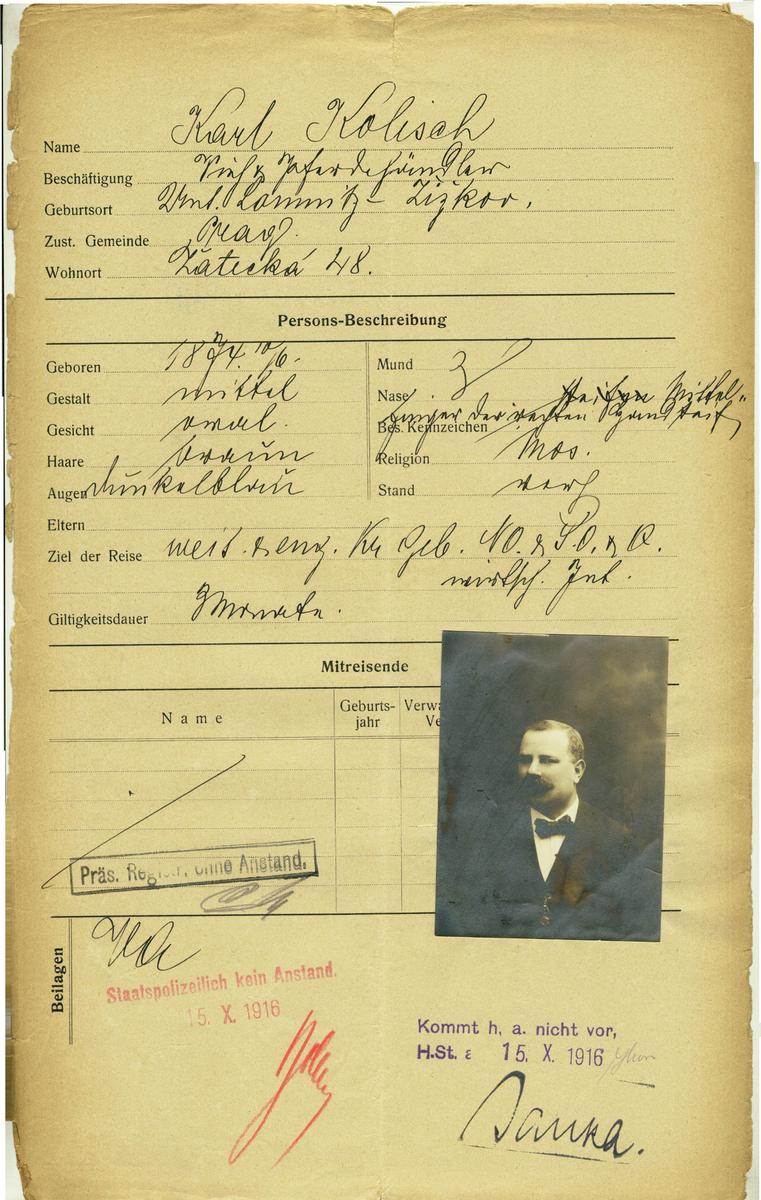 Name Karl Kolisch
Beschäftigung Vieh & Pferdehändler
Geburtsort Unt. Lomnitz - Žižkov.
Zust. Gemeinde Prag.
Wohnort Žatecká 48.
Persons-Beschreibung
Geboren 1874. 10/6.
Gestalt mittel
Gesicht oval.
Haare braun
Augen dunkelblau
Mund
Nase
Mittel-
Bes. Kennzeichen finger der rechten Hand steif
Religion mos.
Stand verh
Eltern
Ziel der Reise weit. & eng. Kr Geb. NO. & SO. & O.
wirtsch. Int.
Giltigkeitsdauer 3 Monate.
Mitreisende
Name
Geburts-
jahr
Verwa
Ve
Präs. Registr. ohne Anstand.
Beilagen
Staatspolizeilich kein Anstand.
15. X. 1916
Kommt h. a. nicht vor,
H.St. a 15. X. 1916